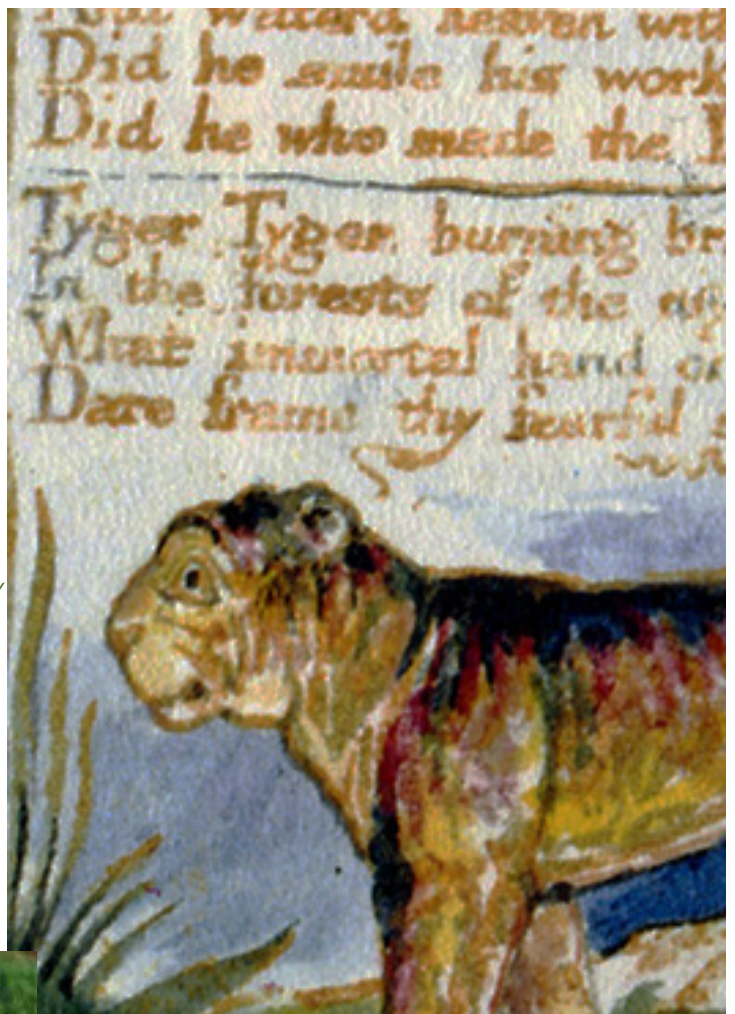 waterd heaven with
Did he smile his work
Did he who made the
Tyger Tyger burning br
In the forests of the nig
What immortal hand or
Dare frame thy fearful s